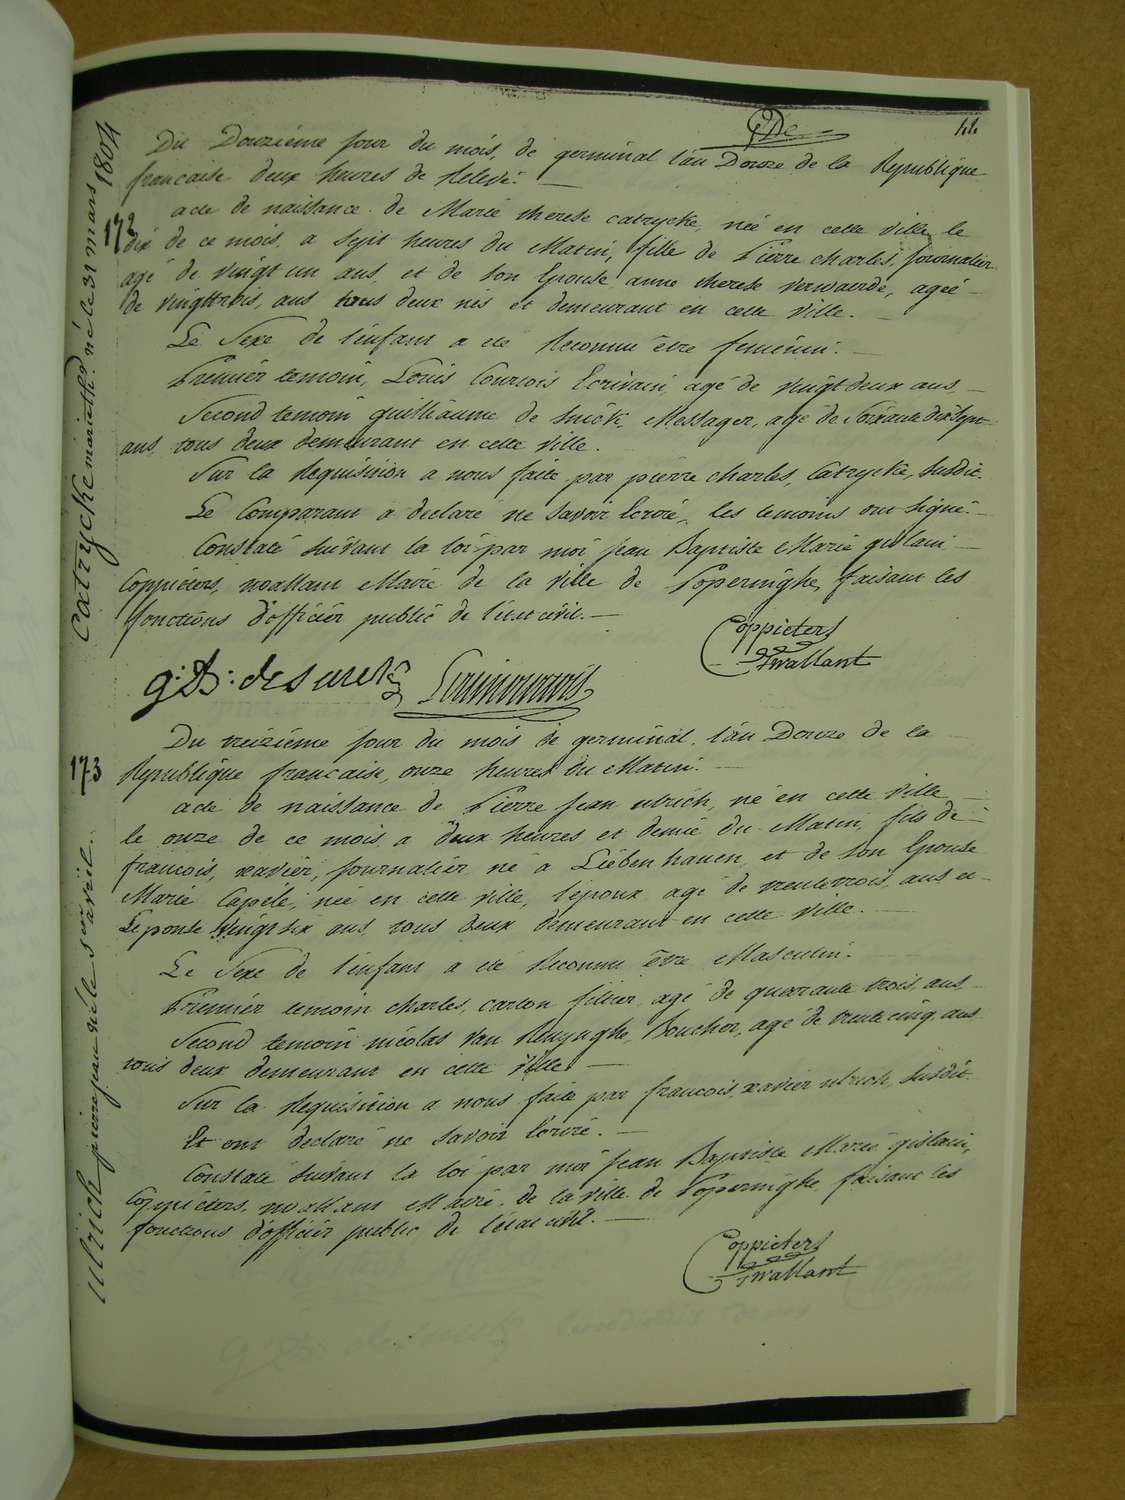 44
Du Douzième jour du mois, de germinal l'an Douze de la Republique
francaise deux heures de Relevé.
172
acte de naissance de Marie therese catrycke, née en cette ville le
dix de ce mois, a sept heures du Matin, fille de Pierre charles, journalier
agé de vingt un ans, et de son Epouse anne therese verwaerde, ageé
de vingttrois, ans tous deux nés et demeurant en cette ville.
Le Sexe de l'enfant a eté Reconnu être feminin.
Premier temoin, Louis Courtois Ecrivain, agé de vingt deux ans,
Second temoin guilliaume de snick, Messager, agé de Soixante dix Sept
ans, tous deux demeurant en cette ville.
Sur la Requisition a nous faite par pierre charles, Catrycke, susdit.
Le Comparant a declaré ne savoir Ecrire, les temoins ont signé.
Constaté suivant la loi par moi jean Baptiste Marie gislain
Coppieters, wallant Maire de la ville de Poperinghe, faisant les
fonctions d'officier public de l'état civil.
Coppieters
twallant
catrycke marie th. né le 31 mars 1804
173
Du treizième jour du mois de germinal, l'an Douze de la
Republique francaise, onze heures du Matin.
acte de naissance de Pierre jean ulrich, né en cette ville
le onze de ce mois, a deux heures et demie du Matin, fils de
francois, xavier, journalier né a Liebenhauen, et de son Epouse
Marie Capele, née en cette ville, l'époux agé de trentetrois, ans et
L'eponse vingt six ans, tous deux demeurant en cette ville.
Le Sexe de l'enfant a eté Reconnu être Masculin.
Premier temoin charles, carton filtier, agé de quarante trois, ans
Second temoin nicolas Van Renynghe, Boucher, agé de trente cinq, ans
tous deux demeurant en cette ville.
Sur la Requisition a nous faite par francois, xavier ulrich, susdit.
Et ont declaré ne savoir Ecrire.
Constaté suivant la loi par moi jean Baptiste Marie gislain,
Coppieters, wallant Maire, de la ville de Poperinghe, faisant les
fonctions d'officier public de l'état civil.
Coppieters
twallant
ulrich pierre jean né le 1er avril.